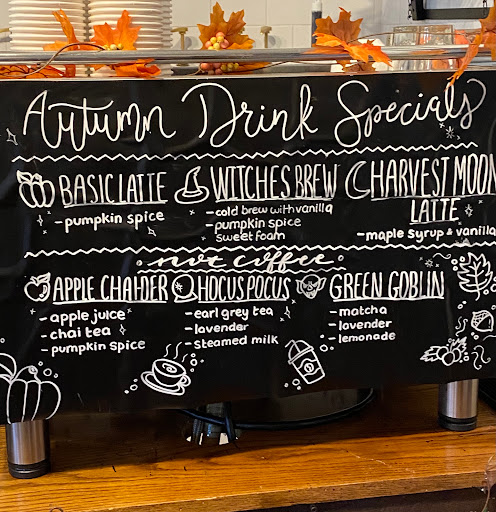 Autumn Drink Specials
BASIC LATTE
- pumpkin spice
WITCHES BREW
- cold brew with vanilla
- pumpkin spice
sweet foam
HARVEST MOON
LATTE
- maple syrup & vanilla
not coffee
APPLE CHAIDER
- apple juice
- chai tea
- pumpkin spice
HOCUS POCUS
- earl grey tea
- lavender
- steamed milk
GREEN GOBLIN
- matcha
- lavender
- lemonade